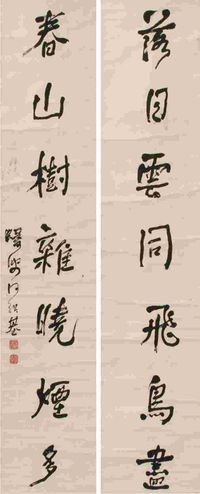 落日雲同飛鳥盡
春山樹雜曉煙多
何紹基